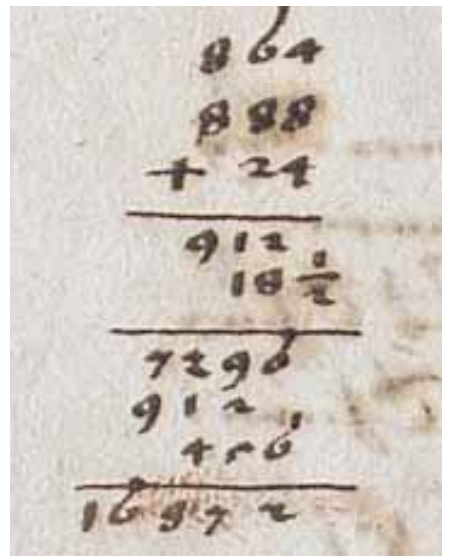 864
888
+ 24
912
18 1/2
7296
912
456
16872